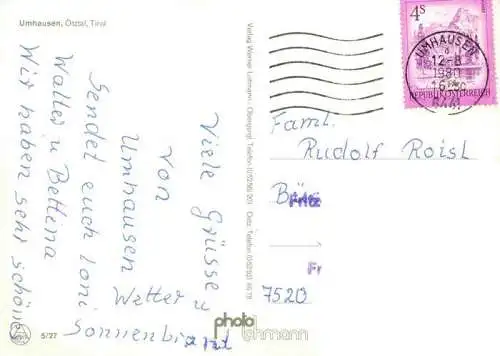 Umhausen, Ötztal, Tirol
Viele Grüsse
von
Umhausen
Sendet euch Toni
Walter u Bettina
Wir haben sehr schönes
Wetter u
Sonnenbrand
5/27
Verlag Werner Lohmann, Obergurgl, Telefon
Oetz, Telefon
4S
REPUBLIK ÖSTERREICH
UMHAUSEN
12-8
1980
16
6441
Faml.
Rudolf Roisl
7520
photo
lohmann